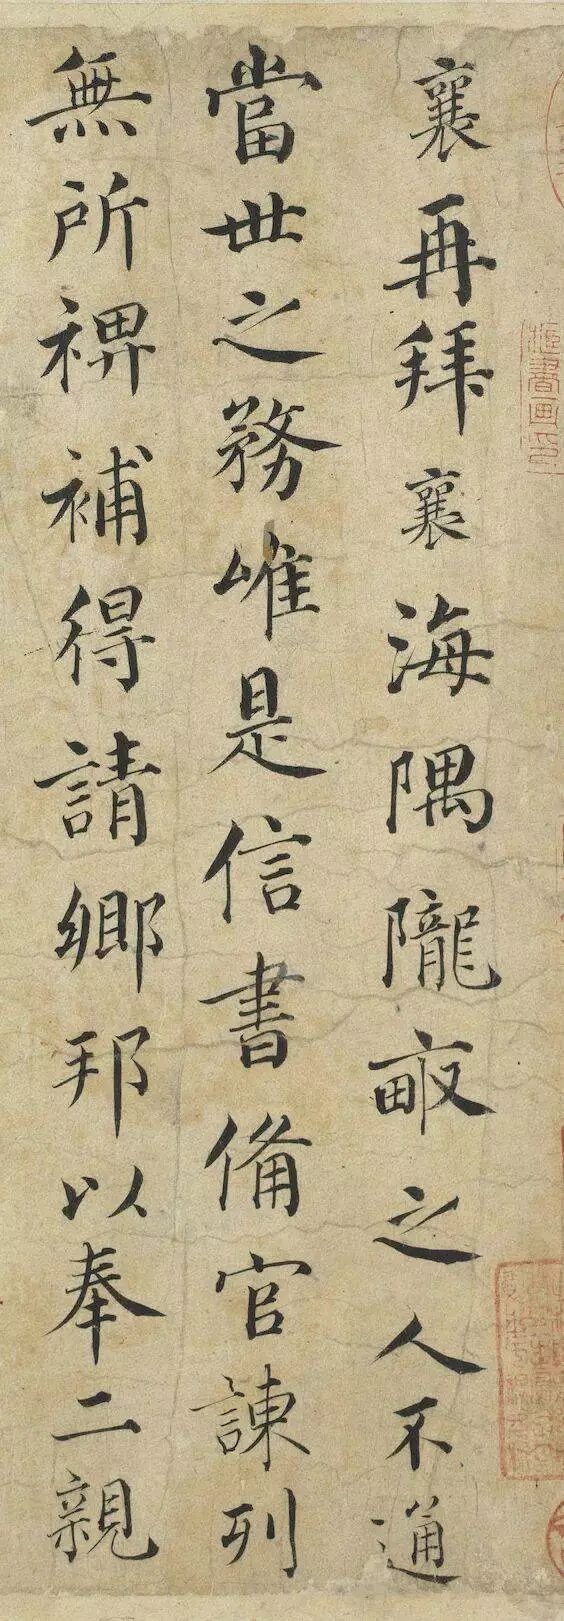 襄再拜襄海隅隴畝之人不通
當世之務唯是信書備官諫列
無所裨補得請鄉邦以奉二親